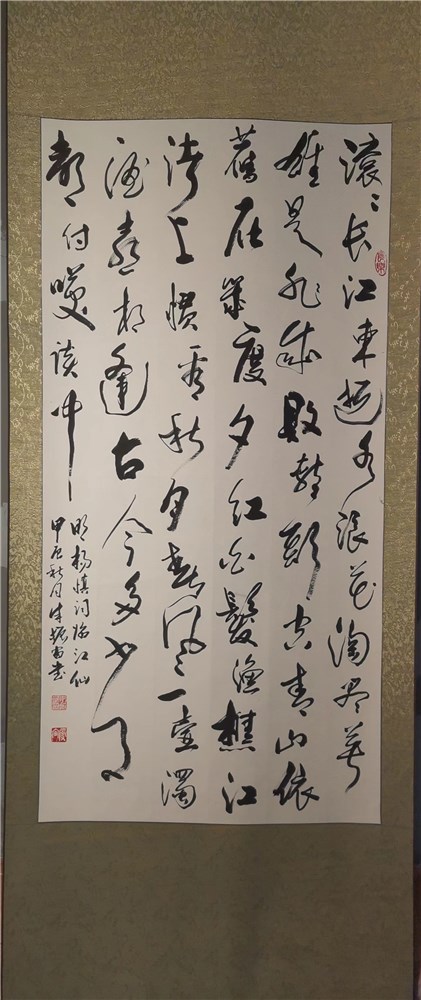 滚滚长江東逝水浪花淘尽英
雄是非成败转头空青山依
舊在幾度夕红白髮漁樵江
渚上惯看秋月春风一壶濁
酒喜相逢古今多少事
都付咲谈中
明杨慎词临江仙
甲辰秋月 书